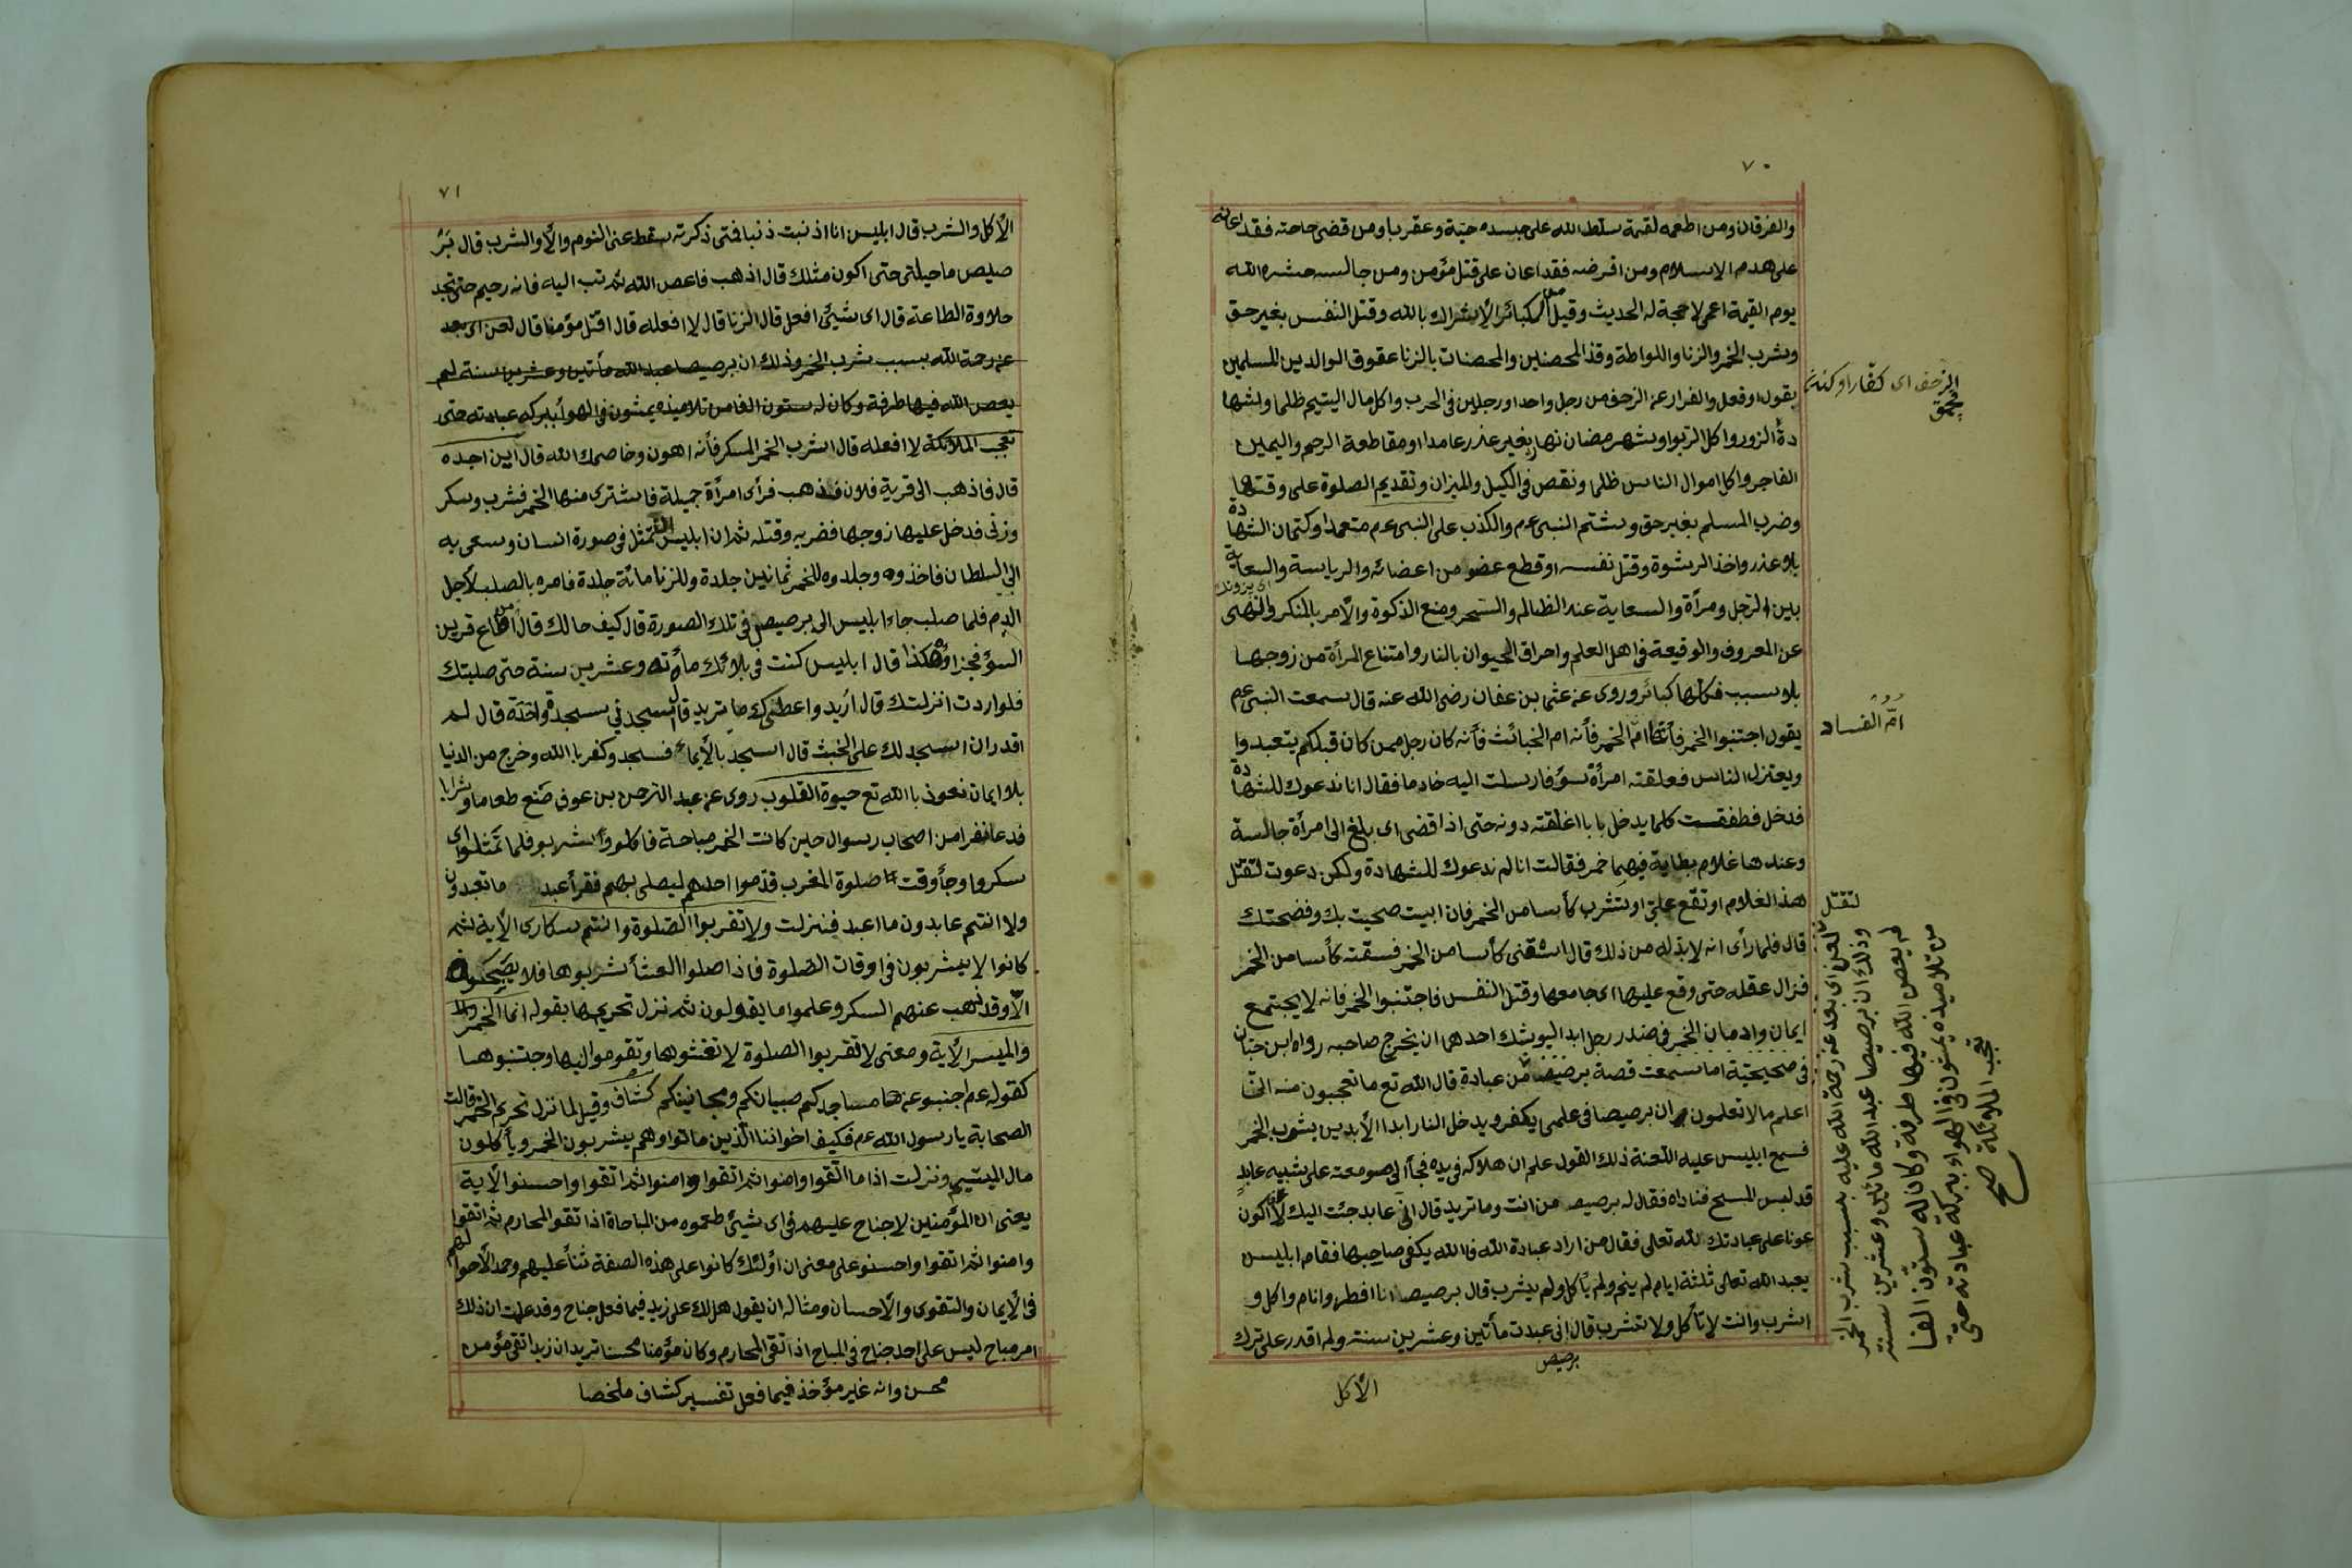 ٧٠
والفرقان ومن اطعمه لقمة سلط الله على جسده حية وعقربا ومن قضى حاجته فقد اعانه
على هدم الاسلام ومن اقرضه فقد اعان على قتل مؤمن ومن جالسه حشره الله
يوم القيمة اعمى لا حجة له الحديث وقيل كبائر الأشراك بالله وقتل النفس بغير حق
وشرب الخمر والزنا واللواطة وقذ المحصنين والمحصنات بالزنا عقوق الوالدين المسلمين
بقول او فعل والفرار عن الزحف من رجل واحد او رجلين في الحرب واكل مال اليتيم ظلما ولشها
دة الزور واكل الربوا وشهر مضان نهار بغير عذر عامدا او مقاطعة الرحم واليمين
الفاجر واكل اموال الناس ظلما ونقص في الكيل والميزان وتقديم الصلوة على وقتها
وضرب المسلم بغير حق وشتم النبى عم والكذب على النبى عم متعمدا وكتمان الشهادة
بلا عذر واخذ الرشوة وقتل نفسه او قطع عضو من اعضائه والرياسة والسعاية
بين الرجل ومرأة والسعاية عند الظالم والسحر ومنع الذكوة والأمر بالمنكر والنهى
عن المعروف والوقيعة في اهل العلم واحراق الحيوان بالنار وامتناع المرأة من زوجها
بلا سبب فكلها كبائر وروى عن عثما بن عفان رضى الله عنه قال سمعت النبى عم
يقول اجتنبوا الخمر فأنها ام الخمر فأنه ام الخبائث فأنه كان رجل ممن كان قبلكم يتعبدوا
ويعتزل الناس فعلقته امرأة سؤ فارسلت اليه خادما فقال انا ندعوك للشهادة
فدخل فطفقت كلما يدخل بابا اغلقته دونه حتى اذا قضى اى بلغ الى امرأة جالسة
وعندها غلام بطاية فيهما خمر فقالت انا لم ندعوك للشهادة ولكن دعوت لتقتل
هذ الغلام او تقع على او تشرب كأسا من الخمر فان ابيت صحيت بك وفضحتك
قال فلما رأى انه لا بد له من ذلك قال اسقنى كأسا من الخمر فسقته كأسا من الخمر
فزال عقله حتى وقع عليها اى جامعها وقتل النفس فاجتنبوا الخمر فانه لا يجتمع
ايمان وادمان الخمر في صدر رجل ابدا ليوشك احدهما ان يخرج صاحبه رواه ابن حبان
في صحيحته اما سمعت قصة برصيصا من عبادة قال الله تع ما تعجبون منه انى
اعلم ما لا تعلمون ان برصيصا في علمى يكفر ويدخل النار ابدا الأبدين بشرب الخمر
فسمع ابليس عليه اللعنة ذلك القول علم ان هلاكه في يده فجأ الى صومعته على شبيه عابد
قد لبس المسح فناداه فقال له برصيصـ من انت وما تريد قال انى عابد جئت اليك لأكون
عونا على عبادتك لله تعالى فقال من اراد عبادة الله فالله يكفى صاحبها فقام ابليس
يعبد الله تعالى ثلثة ايام لم ينم ولم يأكل ولم يشرب قال برصيصـ انا افطر وانام واكل و
اشرب وانت لا تأكل ولا تشرب قال انى عبدت مأتين وعشرين سنة ولم اقدر على ترك
برصيص
الأكل
الزحف اى كفار او كنه
ام الفساد
لتقتل
لعن اى بعد عن رحمة الله عليه بسبب شرب الخمر
وذلك ان برصيصا عبد الله مأتين وعشرين سنة
لم يعص الله فيها طرفة وكان له ستون الفا
من تلاميذه يمشون في الهواء ببركة عبادته حتى
تعجب الملائكة صح
٧١
الأكل والشرب قال ابليس انا اذنبت ذنبا فمتى ذكرته سقط عنى النوم والأ والشرب قال بر
صيص ما حيلتى حتى اكون مثلك قال اذهب فاعص الله ثم تب اليه فانه رحيم حتى تجد
حلاوة الطاعة قال اى شيئ افعل قال الزنا قال لا افعله قال اقتل مؤمنا قال لعن اى بعد
عن رحمة الله بسبب شرب الخمر وذلك ان برصيصا عبد الله مأتين وعشرين سنة لم
يعص الله فيها طرفة وكان له ستون الفا من تلاميذه يمشون في الهوأ ببركه عبادته حتى
تعجب الملائكة لا افعله قال اشرب الخمر المسكر فأنه اهون وخاصمك الله قال اين اجده
قال فاذهب الى قرية فلان فذهب فرأى امرأة جميلة فاشترى منها الخمر فشرب وسكر
وزنى فدخل عليها زوجها فضربه وقتله ثم ان ابليس تمثل في صورة انسان وسعى به
الى السلطان فاخذوه وجلدوه للخمر ثمانين جلدة وللزنا مائة جلدة فامره بالصلب لأجل
الدم فلما صلب جاء ابليس الى برصيص في تلك الصورة قال كيف حالك قال من اطاع قرين
السؤ فجزاؤه هكذا قال ابليس كنت في بلائك مأته وعشرين سنة حتى صلبتك
فلو اردت انزلتك قال اريد واعطنيك ما تريد قال اسجدنى سجدة واحدة قال لم
اقدر ان اسجد لك على الخبث قال اسجد بالأيماء فسجد وكفر باالله وخرج من الدنيا
بلا ايمان نعوذ باالله تع حيوة القلوب روى عن عبد الرحمن بن عوف صنع طعاما وشرابا
فدعا نفرا من اصحاب رسوال حين كانت الخمر مباحة فاكلوا وشربو فلما تمثلوا اى
سكروا وجأ وقت صلوة المغرب قدموا احدهم ليصلى بهم فقرأ عبد ما تعبدون
ولا انتم عابدون ما اعبد فنزلت ولا تقربوا الصلوة وانتم سكارى الأية ثم
كانوا لا يشربون في اوقات الصلوة فاذا صلوا العشأ شربوها فلا يصبحون
الا وقد ذهب عنهم السكر وعلموا ما يقولون ثم نزل تحريمها بقوله انما الخمر
والميسر الأية ومعنى لا تقربوا الصلوة لا تغشوها وتقوموا اليها وجتنبوها
كقوله عم اجنبوعن ها مساجدكم صبيانكم ومجانينكم كشاف وقيل لما نزل تحريم الخمر قالت
الصحابة يا رسول الله عم فكيف اخواننا الذين ماتوا وهم يشربون الخمر ويأكلون
مال الميتسيم ونزلت اذا ما اتقوا وامنوا ثم اتقوا وامنوا ثم اتقوا واحسنوا الأية
يعنى ان المؤمنين لا جناح عليهم في اى شيئ طعموه من الباحاة اذا تقوا المحارم ثم اتقوا
وامنوا ثم اتقوا واحسنو على معنى ان اولئك كانوا على هذه الصفة ثنأ عليهم وحمدا لأحوالهم
في الأيمان والتقوى والأحسان ومثاله ان يقول هل لك على زيد فيما فعل جناح وقد علمت ان ذلك
امر مباح ليس على احد جناح في المباح اذا تقى المحارم وكان مؤمنا محسنا تريد ان زيدا تقى مؤمن
محسن وانه غير مؤخذ فيما فعل تفسير كشاف ملخصا